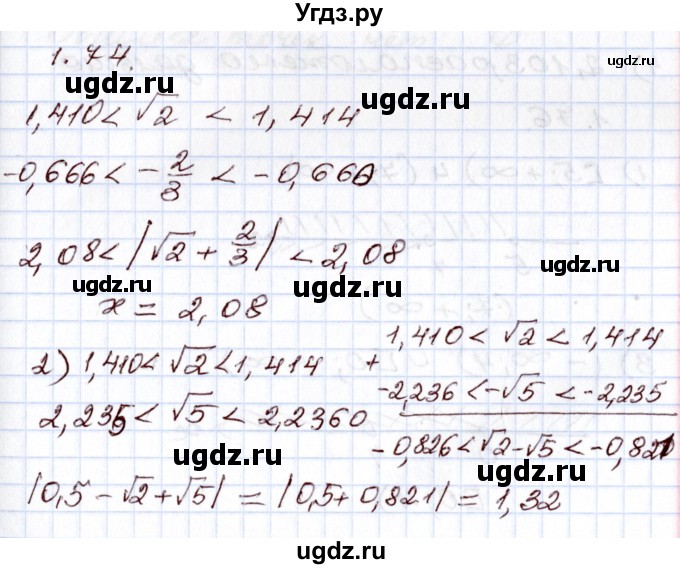 Угдз.ру
1.74.
ugdz.ru ugdz.ru
1,410 < √2 < 1,414
-0,666 < -2/3 < -0,666
ugdz.ru
2,08 < |√2 + 2/3| < 2,08
ugdz.ru ugdz.ru ugdz.ru
x = 2,08
2) 1,410 < √2 < 1,414
+ 1,410 < √2 < 1,414
-2,236 < -√5 < -2,235
ugdz.ru
2,235 < √5 < 2,2360
-0,826 < √2-√5 < -0,821
ugdz.ru ugdz.ru
|0,5 - √2 + √5| = |0,5 + 0,821| = 1,32
ugdz.ru